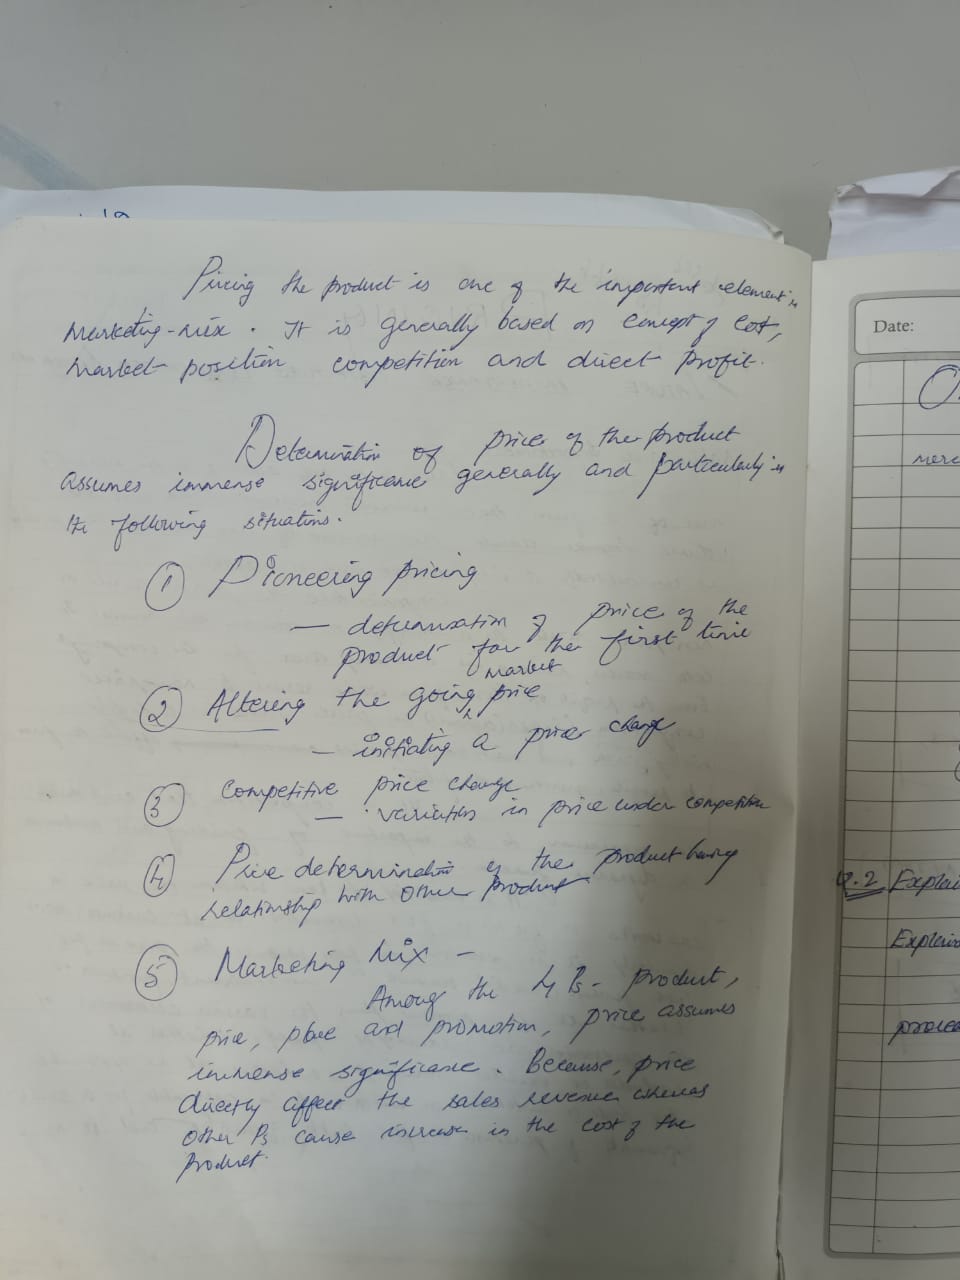 Pricing the product is one of the important element in
Marketing-mix. It is generally based on concept of cost,
market position competition and direct profit.
Determination of price of the product
assumes immense significance generally and particularly in
the following situations.
① Pioneering pricing
— determination of price of the
product for the first time
② Altering the going market price
— initiating a price change
③ Competitive price change
— variation in price under competition
④ Price determination of the product having
relationship with other product
⑤ Marketing Mix —
Among the 4 Ps - product,
price, place and promotion, price assumes
immense significance. Because, price
directly affect the sales revenue whereas
other Ps cause increase in the cost of the
product.
Date:
Q.2